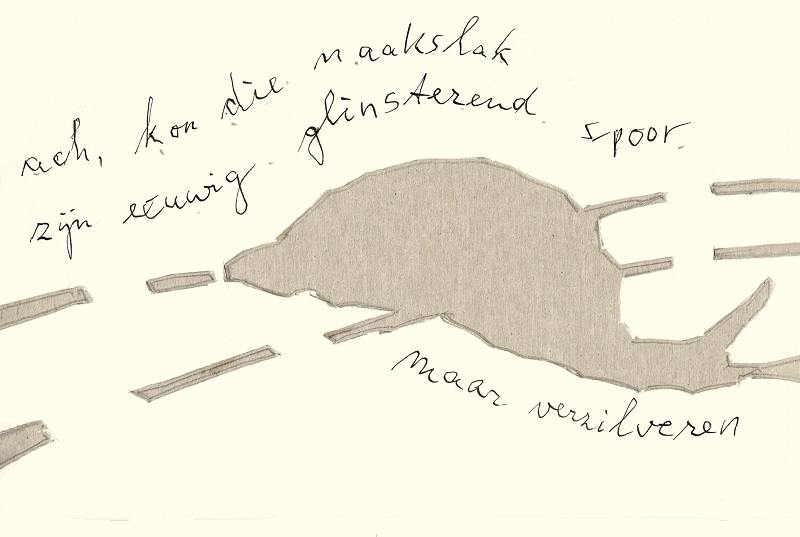 ach, kon die naakslak
zijn eeuwig glinsterend spoor
maar verzilveren